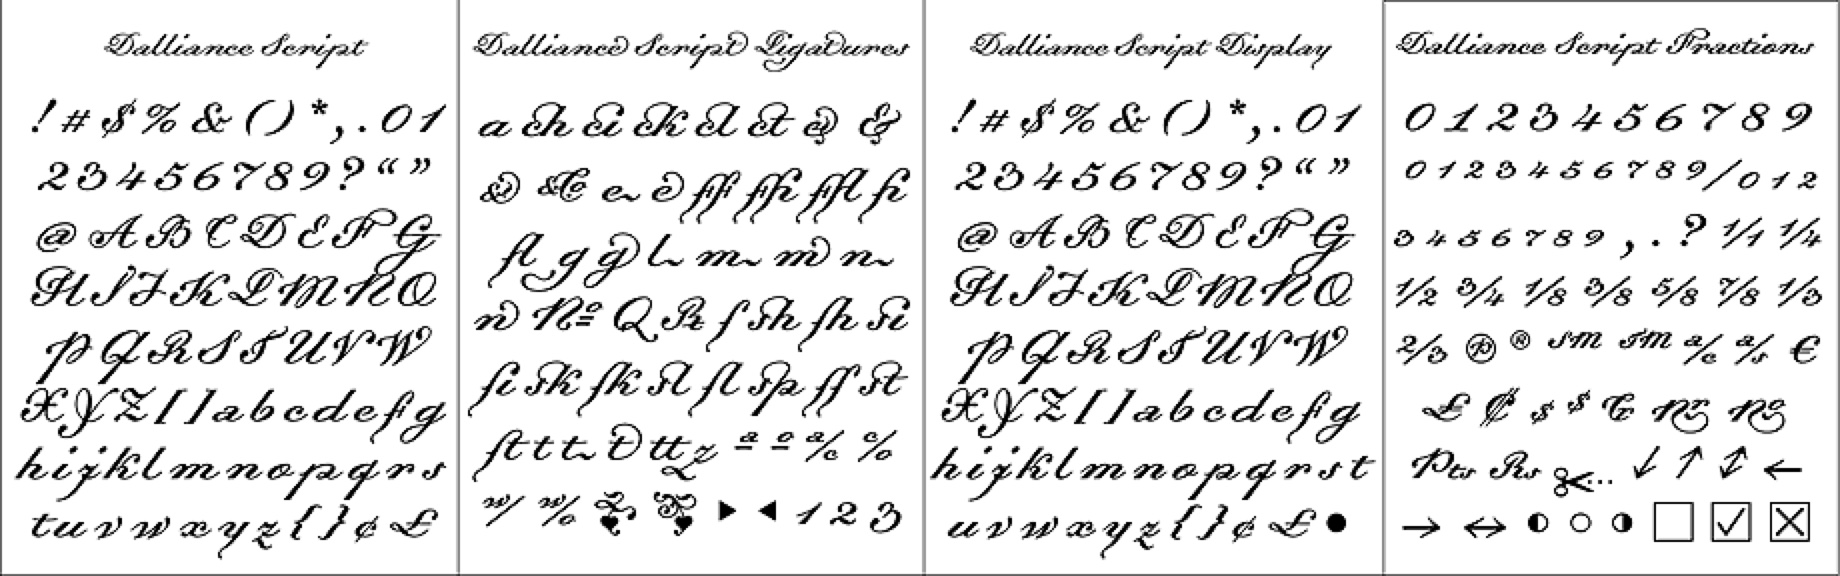 Dalliance Script
! # $ % & ( ) * , . 0 1
2 3 4 5 6 7 8 9 ? “ ”
@ A B C D E F G
H I J K L M N O
P Q R S T U V W
X Y Z [ ] a b c d e f g
h i j k l m n o p q r s
t u v w x y z { } ¢ £
Dalliance Script Ligatures
a ch ci ck cl ct d &
&c e e ff ffi ffl fi
fl g g l m m n
n № Q Rx ſ sh ſh si
ſi sk ſk sl ſl sp ſſ st
ſt t t t tt z ª º a/c c/o
w/ w/o ❧ ▶ ◀ 1 2 3
Dalliance Script Display
! # $ % & ( ) * , . 0 1
2 3 4 5 6 7 8 9 ? “ ”
@ A B C D E F G
H I J K L M N O
P Q R S T U V W
X Y Z [ ] a b c d e f g
h i j k l m n o p q r s t
u v w x y z { } ¢ £ ●
Dalliance Script Fractions
0 1 2 3 4 5 6 7 8 9
0 1 2 3 4 5 6 7 8 9 / 0 1 2
3 4 5 6 7 8 9 , . ? 1/1 1/4
1/2 3/4 1/8 3/8 5/8 7/8 1/3
2/3 ® ® SM TM a/c a/s €
£ $ $ Cr
Pts Rs ✂... ↙ ↗ ←
→ ↔ ◐ ○ ◑ ☐ ☑ ☒